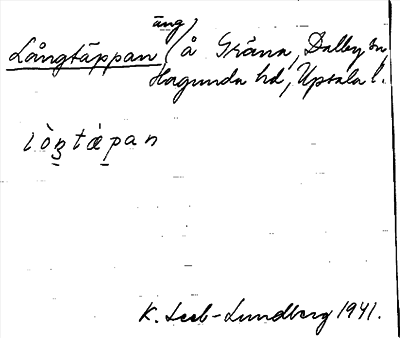 äng)
Långtäppan, (å Gräna, Dalby sn
Hagunda hd, Upsala l.
lòn̠tæ̀pan
K. Leeb-Lundberg 1941.